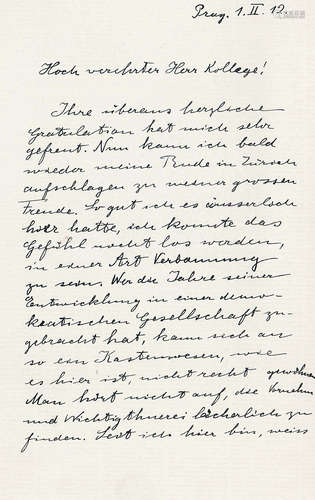 Prag. 1. II. 12
Hoch verehrter Herr Kollege!
Ihre überaus herzliche
Gratulation hat mich sehr
gefreut. Nun kann ich bald
wieder meine Bude in Zürich
aufschlagen zu meiner grossen
Freude. So gut ich es äusserlich
hier hatte, ich konnte das
Gefühl nicht los werden,
in einer Art Verbannung
zu sein. Wer die Jahre seiner
Entwicklung in einer demo-
kratischen Gesellschaft zu-
gebracht hat, kann sich an
so ein Kastenwesen, wie
es hier ist, nicht recht gewöhnen
Man hört nicht auf, die
und Wichtigthuerei lächerlich zu
finden. Seit ich hier bin, weiss